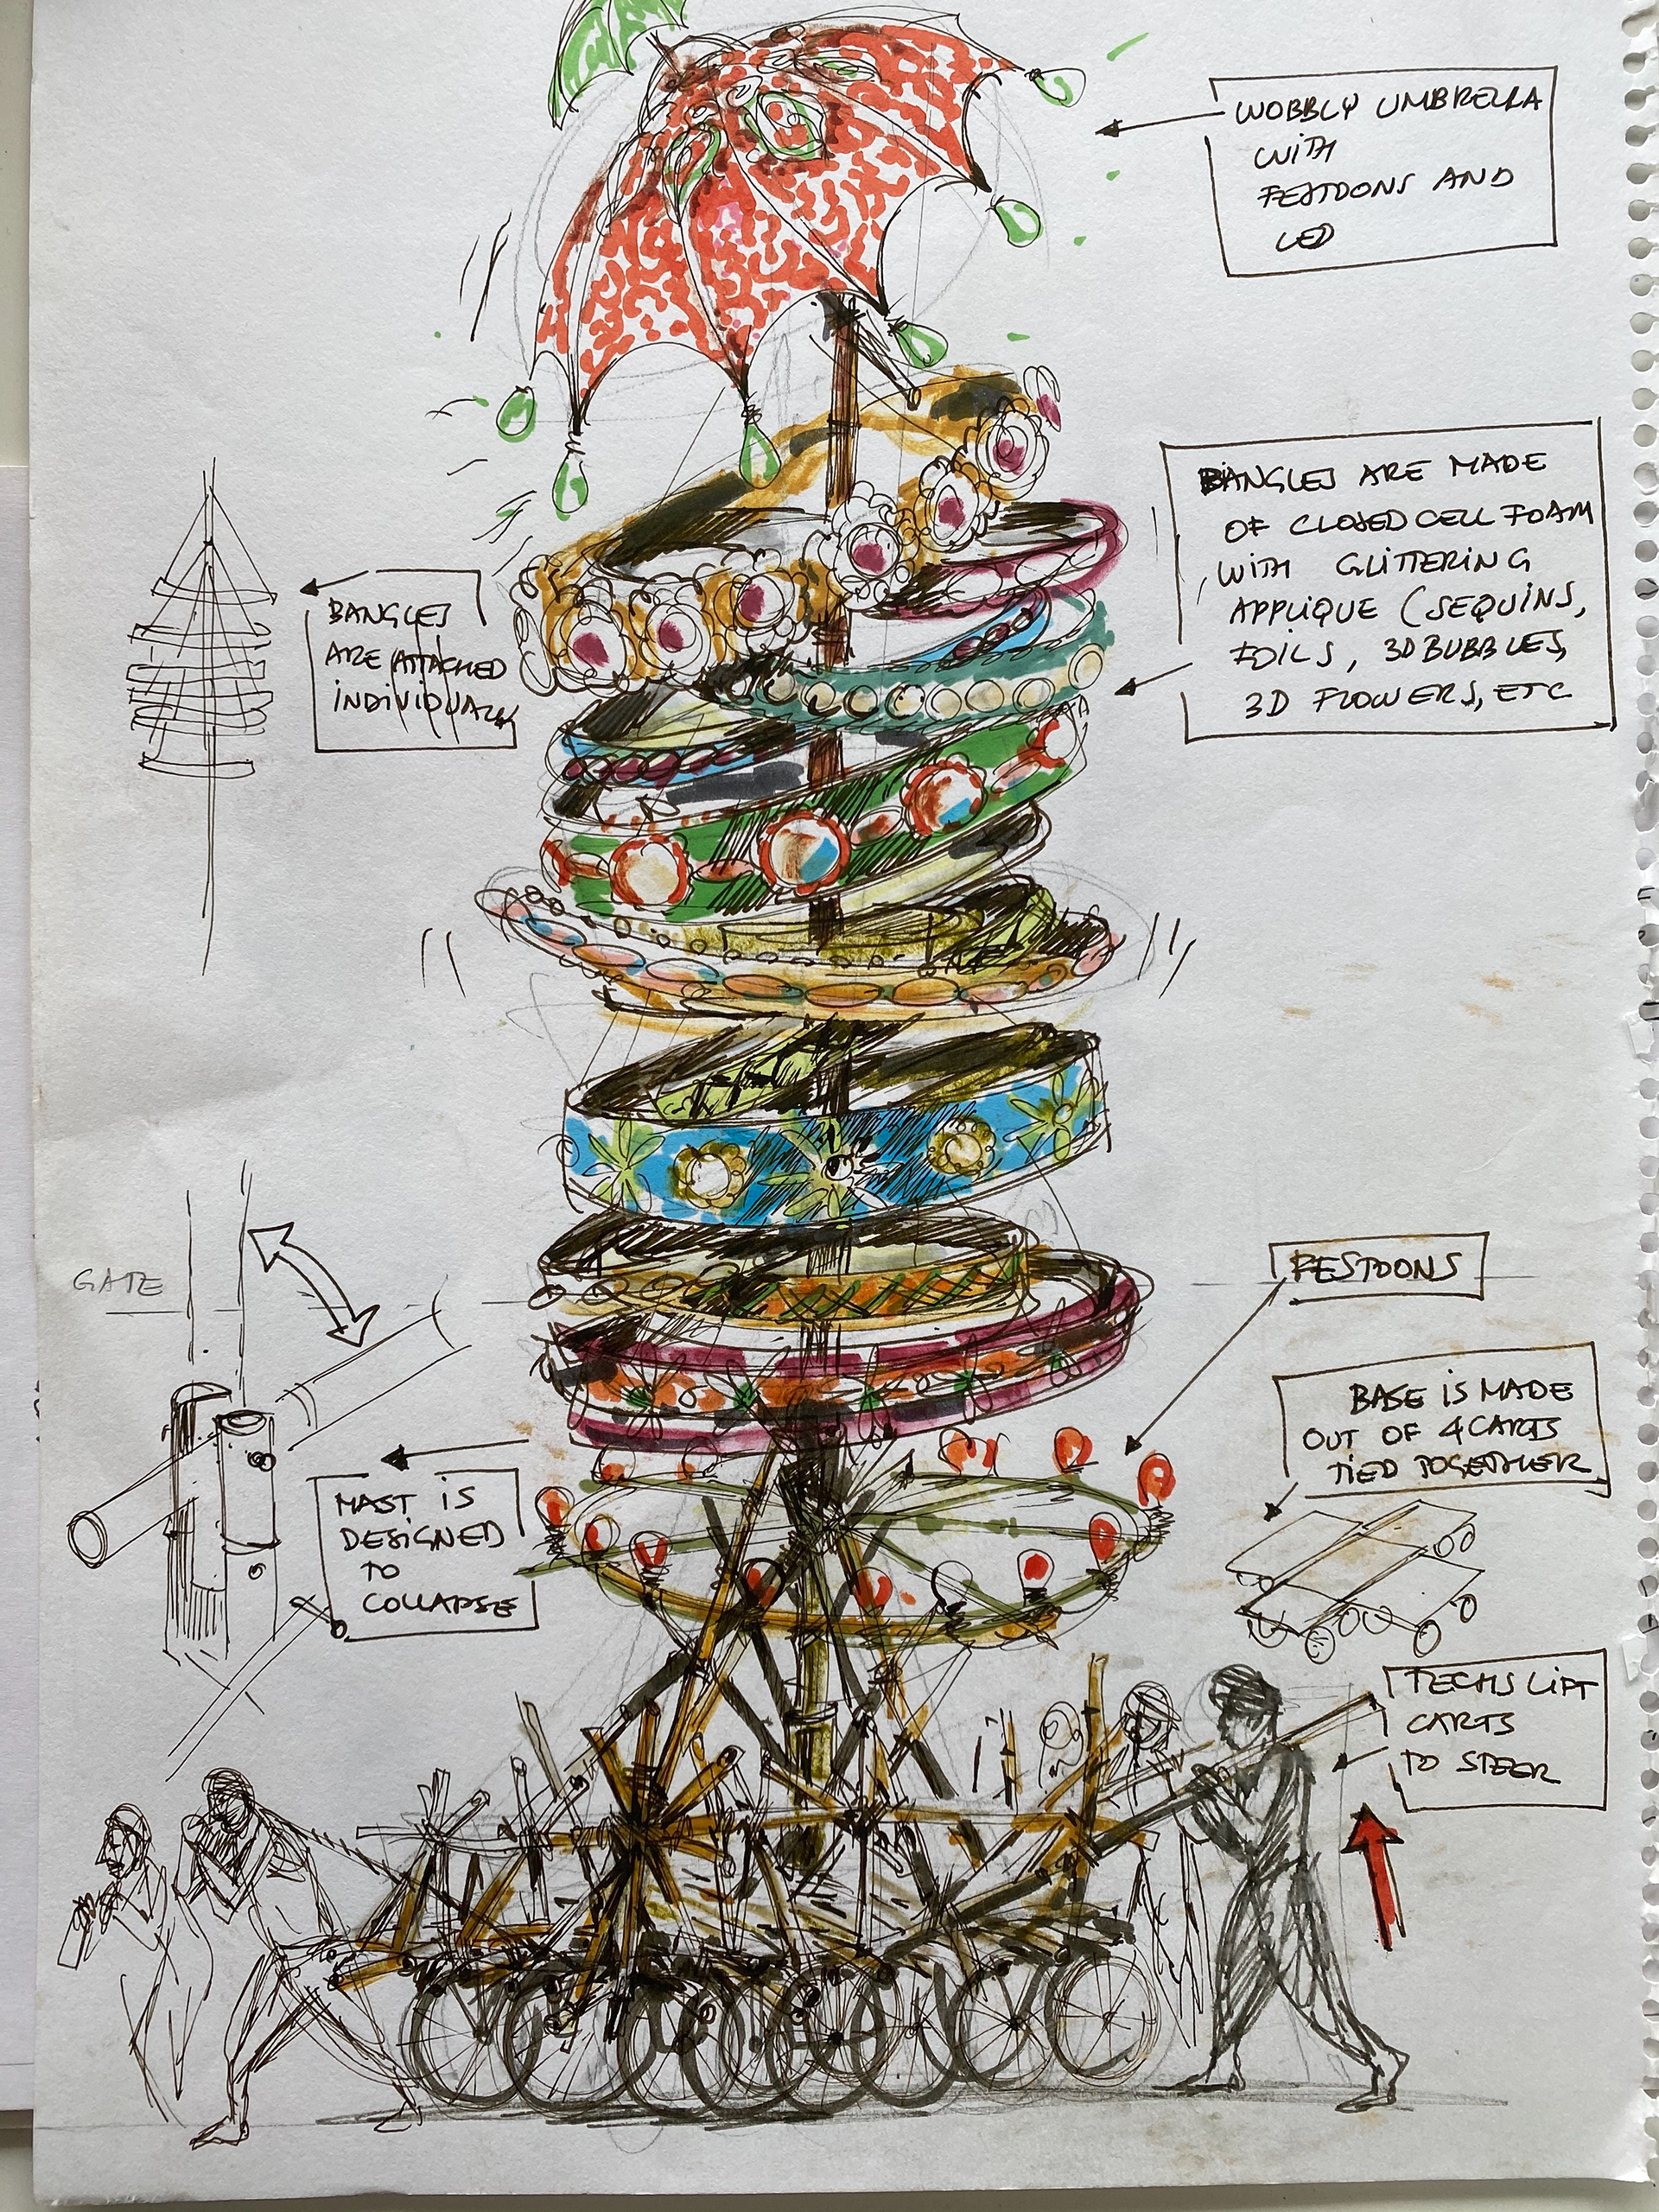 WOBBLY UMBRELLA
WITH
FESTOONS AND
LED
BANGLES ARE MADE
OF CLOSED CELL FOAM
WITH GLITTERING
APPLIQUE (SEQUINS,
FOILS, 3D BUBBLES,
3D FLOWERS, ETC
BANGLES
ARE ATTACHED
INDIVIDUALLY
GATE
FESTOONS
BASE IS MADE
OUT OF 4 CARTS
TIED TOGETHER
MAST IS
DESIGNED
TO
COLLAPSE
TECHS LIFT
CARTS
TO STEER